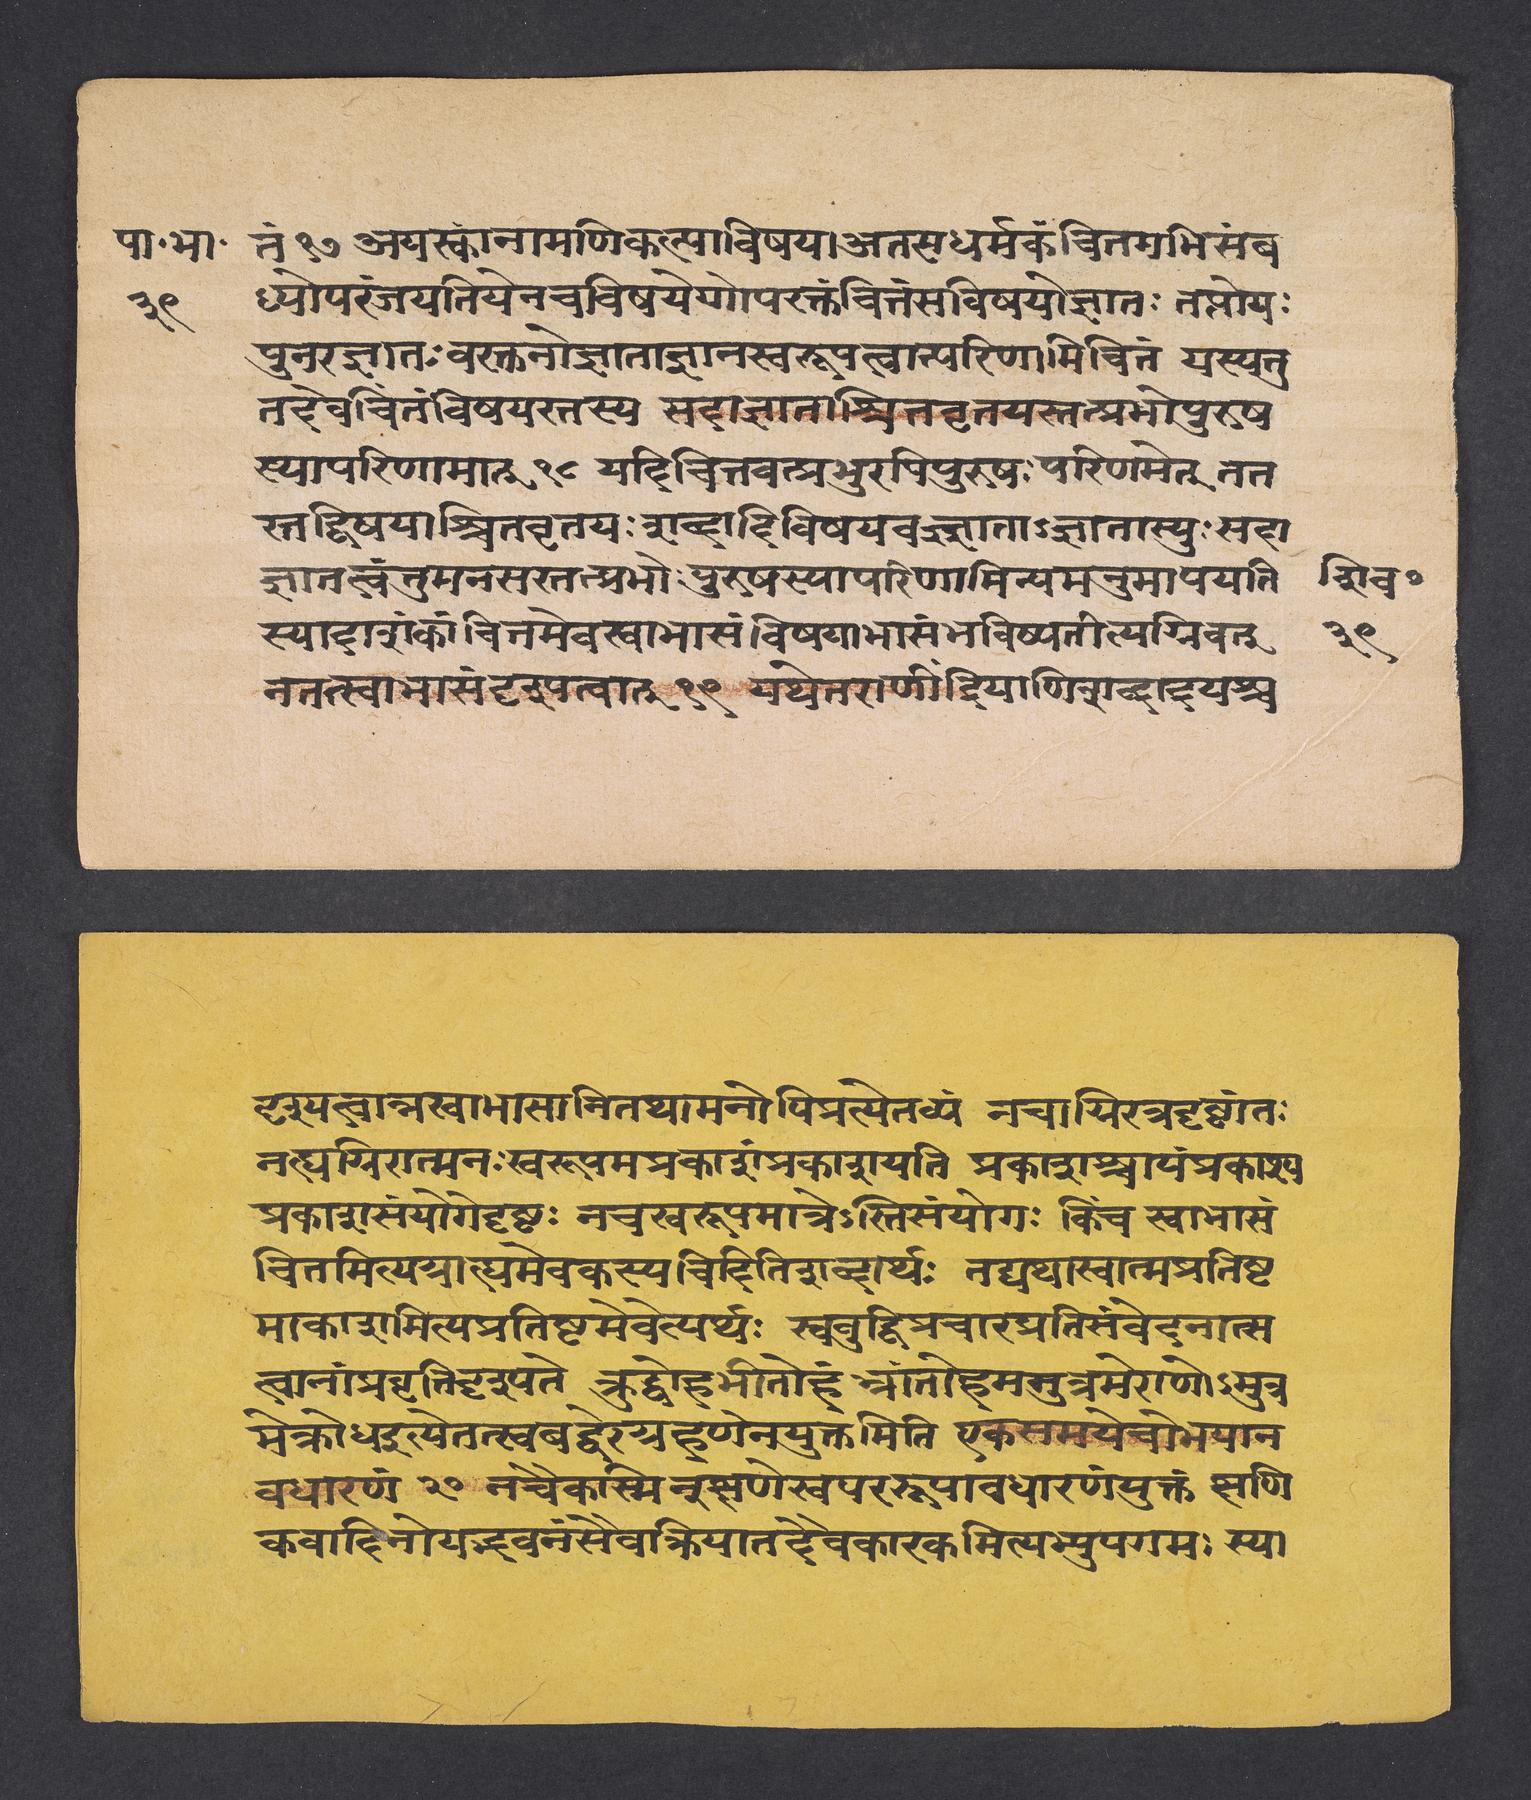 पा॰भा॰
३९
तं १७ अयस्कांनामणिकल्पा विषय।अतसधर्मकं चितमभिसंब
ध्योपरंजयतियेनचविषयेणोपरक्तंचित्तंसविषयोज्ञातः ततोयः
पुनरज्ञातः वस्तनोज्ञाताज्ञानस्वरूपत्वात्परिणामिचितं यस्यतु
तदेवचिंतंविषयस्तस्य सदाज्ञाताश्चित्तवृतयस्तत्प्रभोपुरुष
स्यापरिणामात् १८ यदिचित्तवत्प्रभुरपिपुरुषः परिणमेत् तत
स्तद्विषयाश्चितवृतयः शब्दादिविषयवज्ज्ञाताऽज्ञातास्युः सदा
ज्ञातत्वंतुमनसस्तत्प्रभोः पुरुषस्यापरिणामित्यमनुमापयति
स्यादाशंकां चितमेवस्वाभासं विषयाभासंभविष्यतीत्यग्निवत्
नतत्स्वाभासंदृश्यत्वात् १९ यथेतराणींद्रियाणिशब्दादयश्च
शिव॰
३९
दृश्यत्वान्नस्वाभासानितथामनोपिप्रत्येतव्यं नचाग्निरत्रदृष्टांतः
नत्द्यग्निरात्मनःस्वरूपमप्रकाशंप्रकाशयति प्रकाशश्चायंप्रकाश्य
प्रकाशसंयोगेदृष्टः नचस्वरूपमात्रेऽस्तिसंयोगः किंच स्वाभासं
चितमित्यग्रात्द्यमेवकस्यचिदितिशब्दार्थः तद्यथास्वात्मप्रतिष्ट
माकाशमित्यप्रतिष्टमेवेत्यर्थः स्वबुद्धिप्रचारप्रतिसंवेदनात्स
त्वानांप्रवृत्तिदृश्यते क्रुद्धोहभीतोहं श्रांतोहममुत्रमेरागोऽमुत्र
मेक्रोधइत्येतत्स्वबद्धेरग्रहणेनयुक्तमिति एकसमयेचोभयान
वधारणं २० नच्चैकस्मिन्क्षणेस्वपररूपावधारणंयुक्तं क्षणि
कवादिनोयद्भवनंसैवाक्रियातदेवकारकमित्यभ्युपगमः स्या